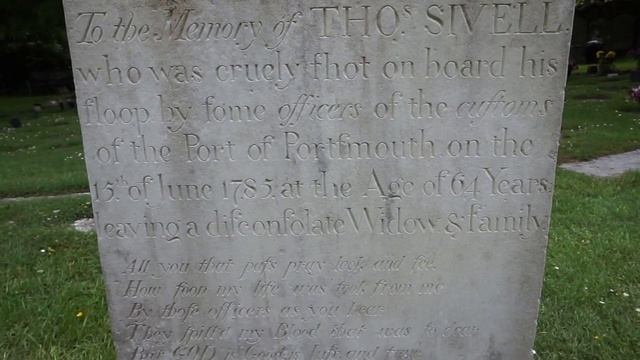 To the Memory of THOˢ. SIVELL.
who was cruely ſhot on board his
ſloop by ſome officers of the cuſtoms
of the Port of Portſmouth on the
15.ᵗʰ of June 1785. at the Age of 64 Years,
leaving a diſconſolate Widow & family.
All you that paſs pray look and ſee.
How ſoon my life was took from me
By thoſe officers as you hear
They ſpill'd my Blood that was ſo dear
But GOD is Good is Juſt and true